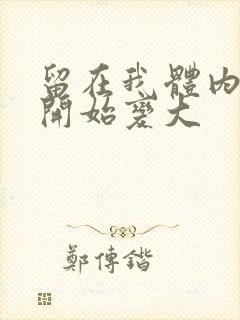 留在我體內
開始變大
鄭傳鍇